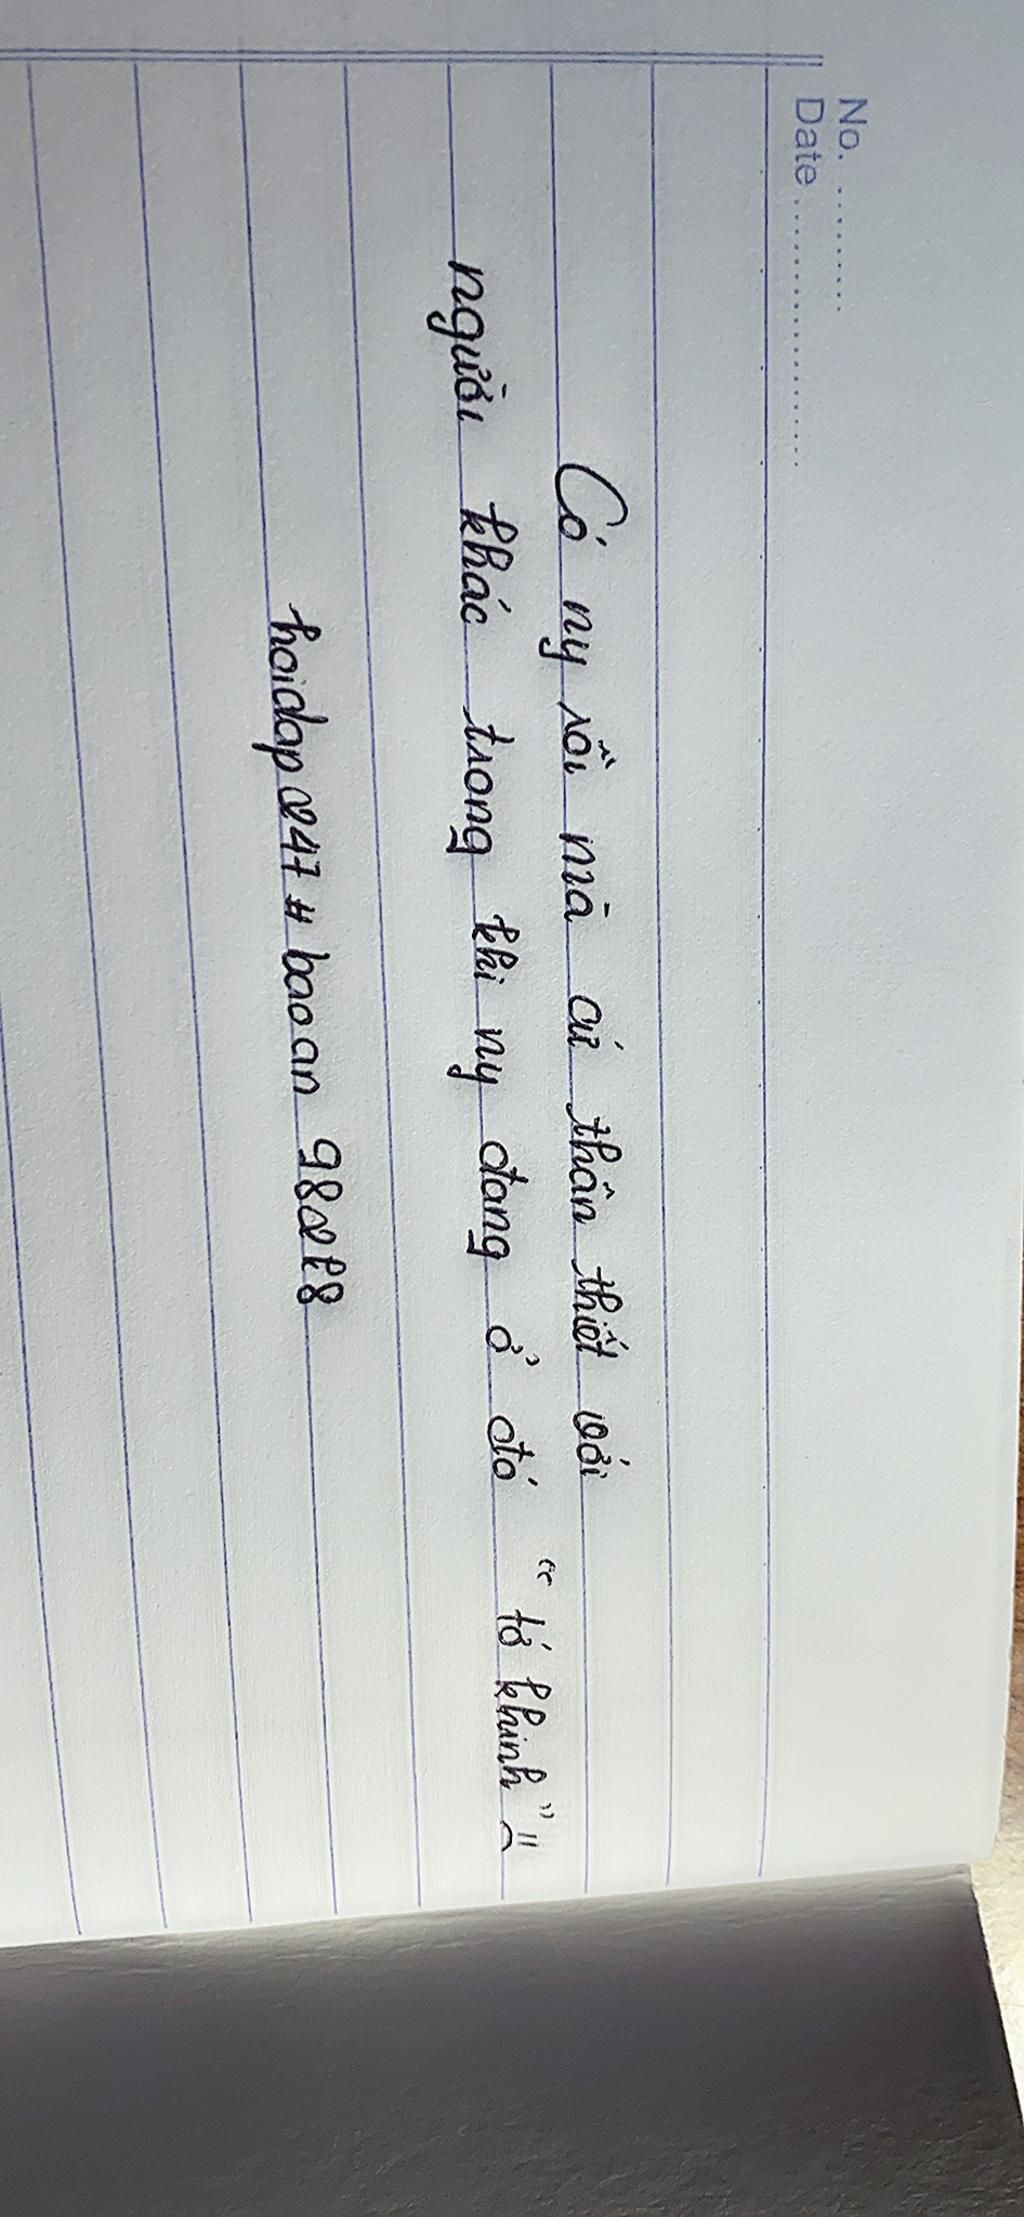 No. ..........
Date ......................
Có ny rồi mà cứ thân thiết với
người khác trong khi ny đang ở đó " tớ khinh " =(
hoidap247 # baoan982k8